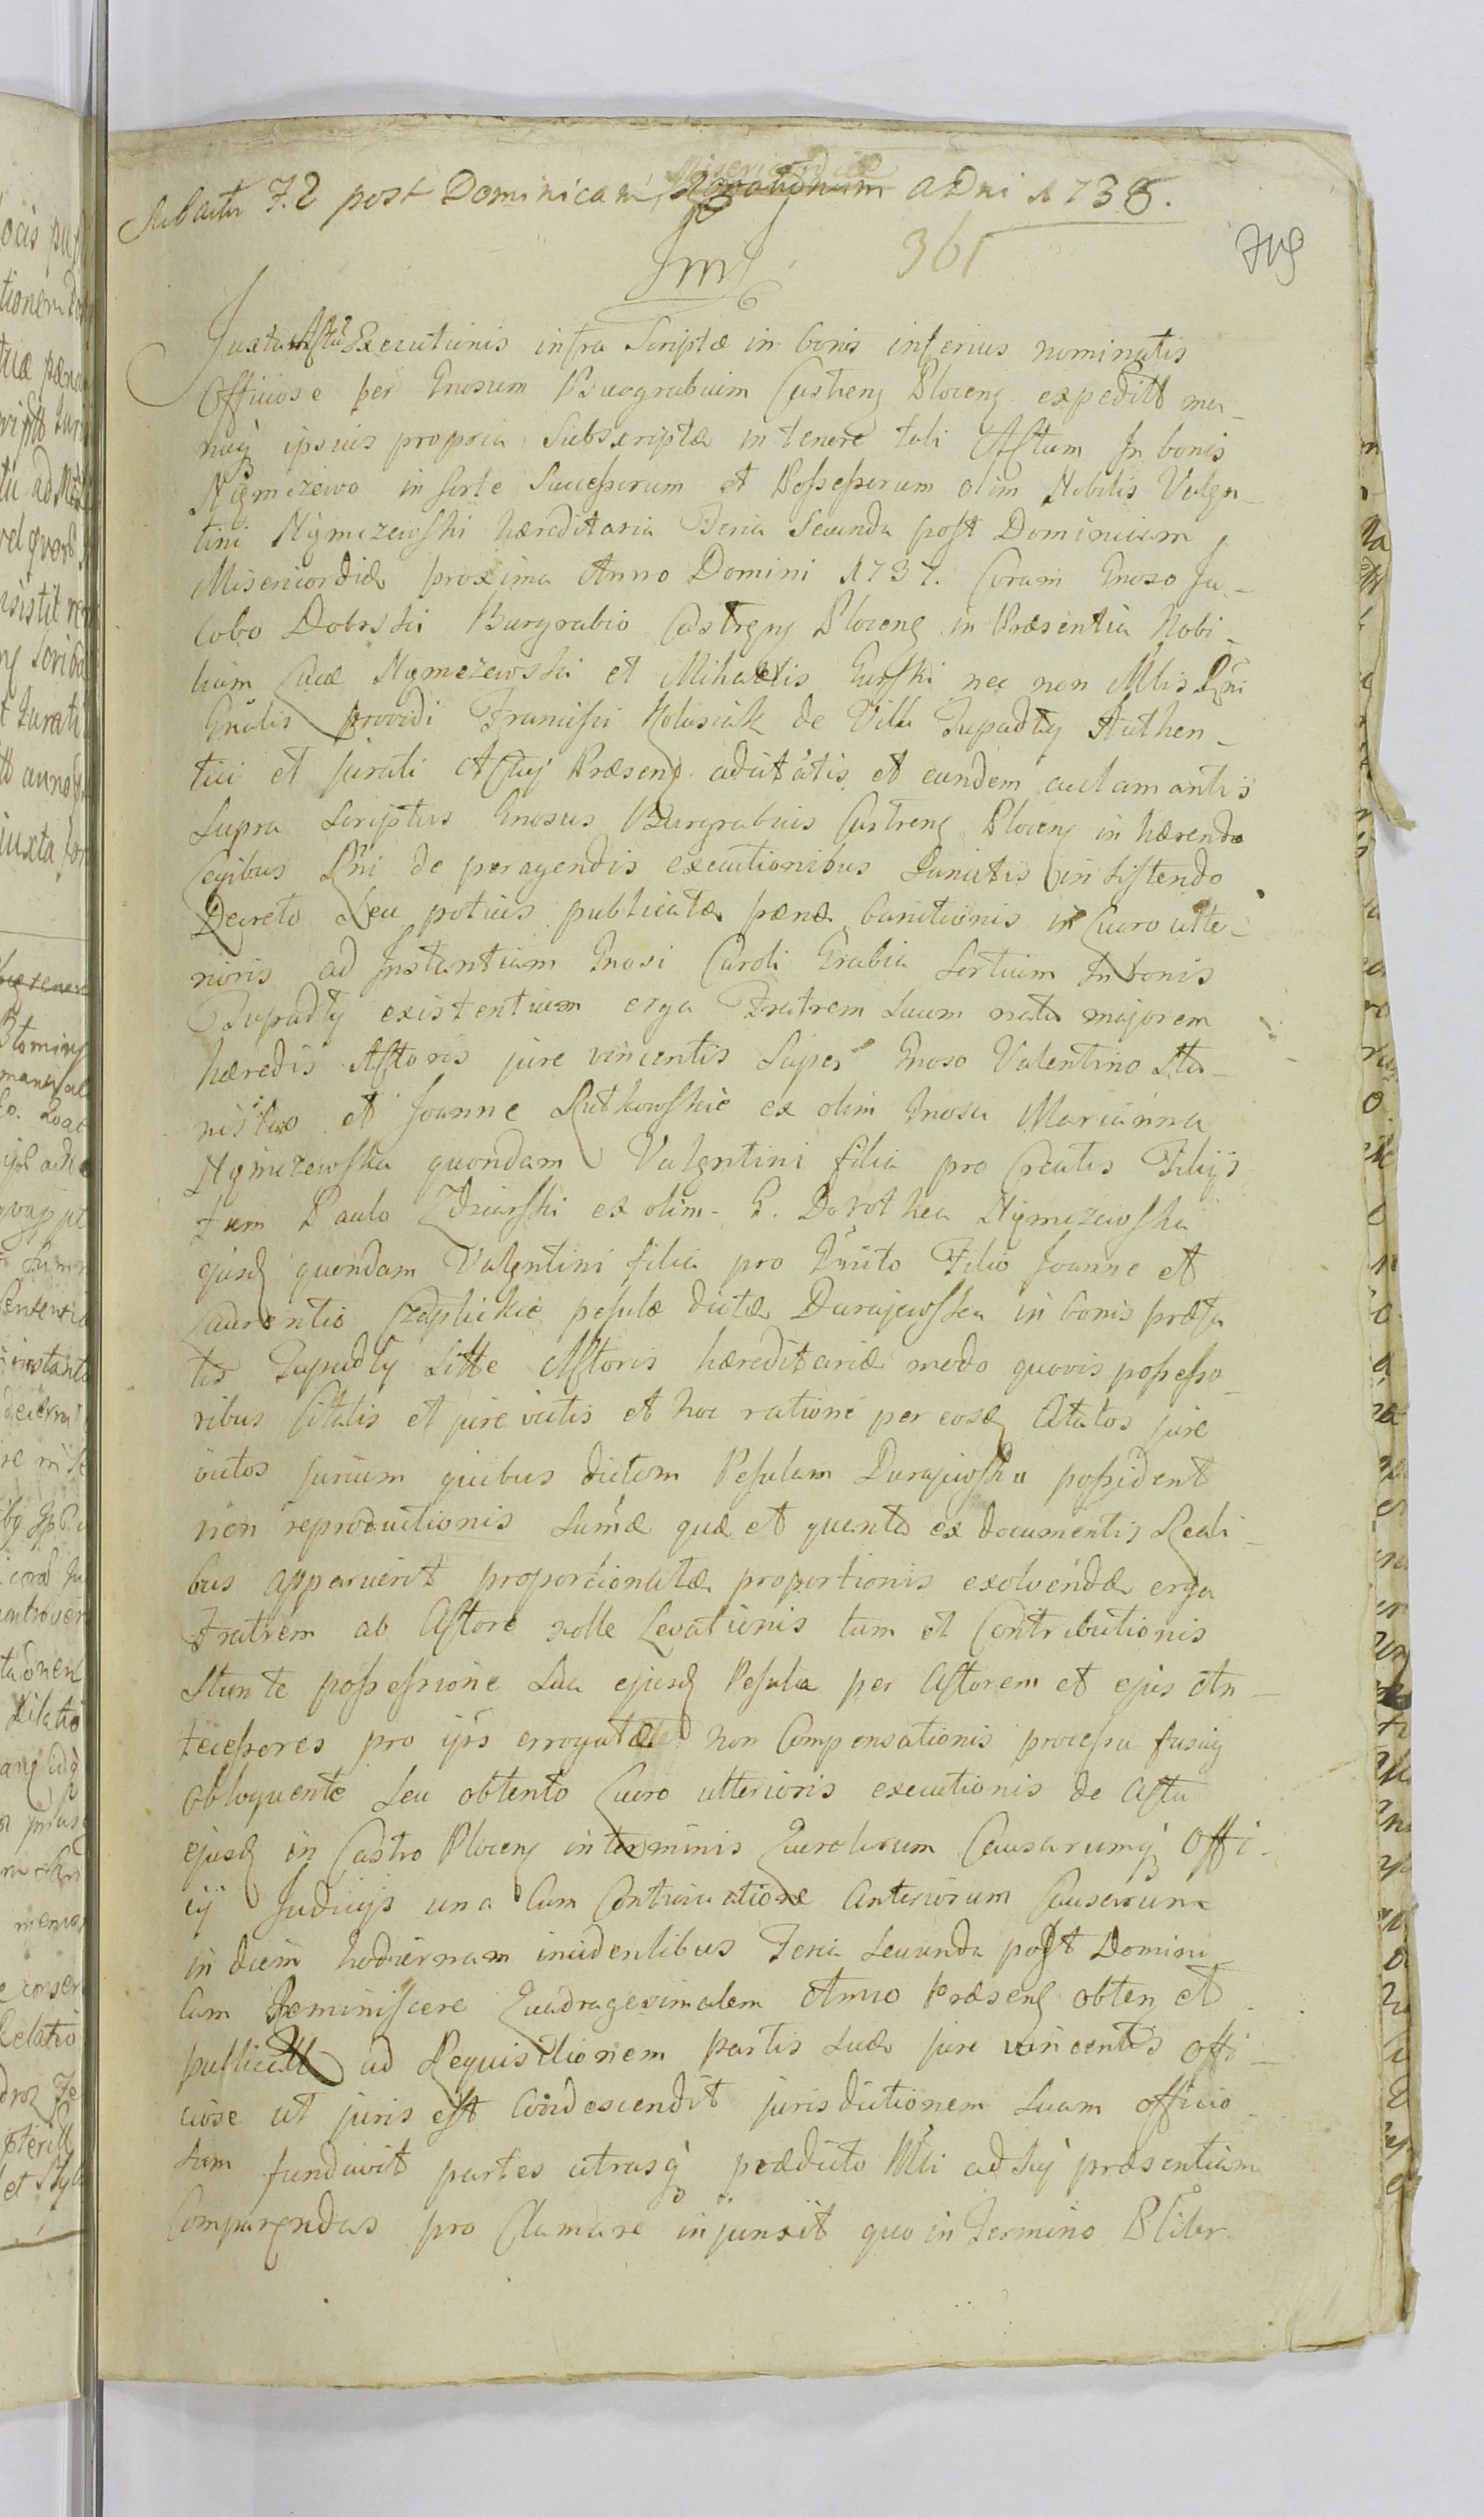 Misericordiæ
Sub actu F. 2 post Dominicam Rogationum A Dni 1738.
361
719
Juxta Actū Executionis infra Scriptæ in bonis inferius nominatis
Officiose per Gnosum Burgrabium Castren Plocen expeditt ma-
nuq ipsius propria Subscriptæ in tenore tali Actum In bonis
Nięmczewo in sorte Successorum et Possessorum olim Nobilis Valęn-
tini Nięmczewski hæreditaria Feria Secunda post Dominicam
Misericordiæ proxima Anno Domini 1737. Coram Gnoso Ja-
cobo Dobrski Burgrabio Castręn Plocen in Præsentia Nobi-
lium Lucæ Nięmczewski et Mihaelis Gurski nec non Mlis Rgni
Gnalis providi Francisci Kolasiak de Villa Zupadły Authen-
tici et jurati Actuj Præsenţ adcitatis et eundem acclamantis
Supra Scriptus Gnosus Burgrabius Castren Plocen in hærendo
Legibus Rni de peragendis executionibus Sancitis insistendo
Decreto Seu potius publicatæ pænæ banitionis in Lucro ulte-
rioris ad Instantiam Gnosi Caroli Grabia Sortium In bonis
Zupadły existentium erga Fratrem Suum natu majorem
hæredis Actoris jure vincentis Super Gnoso Valentino Sta-
nislao et Joanne Rutkowskie ex olim Gnosa Marianna
Nięmczewska quondam Valęntini filia pro Creatis Filijs
tum Paulo Zdziarski ex olim G. Dorothea Nięmczewska
ejusd quondam Valęntini filia pro Gnito Filio Joanne et
Laurentio Czaplickie pesulæ dictæ Durajewska in bonis præfa
tis Zupadły Sittæ Actoris hæreditariæ modo quovis possesso-
ribus Citatis et jure victis et hoc ratione per eosd Citatos jure
victos jurium quibus dictam Pesulam Durajewska possident
non reproductionis Sumæ quæ et quanta ex documentis Reali-
bus apparuerit proporcionatæ proportionis exolvendæ erga
Fratrem ab Actore nolle Levationis tum et Contributionis
Stante possessione Sua ejusd Pesula per Actorem et ejus An-
tecessores pro ijs errogatæ non Compensationis processu fusiuq
obloquente Seu obtento Lucro ulterioris executionis de Actu
ejusd in Castro Plocen in terminis Querelarum Causarumq Offi-
cij Judicijs una Cum Continuatione Anteriorum Causarum
in diem hodiernam incidentibus Feria Secunda post Domini-
Cam Reminiscere Quadragesimalem Anno Præsenţ obten et
publicatt ad Requisitionem partis Suæ jure vincentis offi-
ciose ut juris est Condescendit jurisdictionem Suam officio-
Sam fundavit partes utrasq prædicto Mli ad Suj præsentiam
Comparendas pro Clamare injunxit quo in Termino Pliter